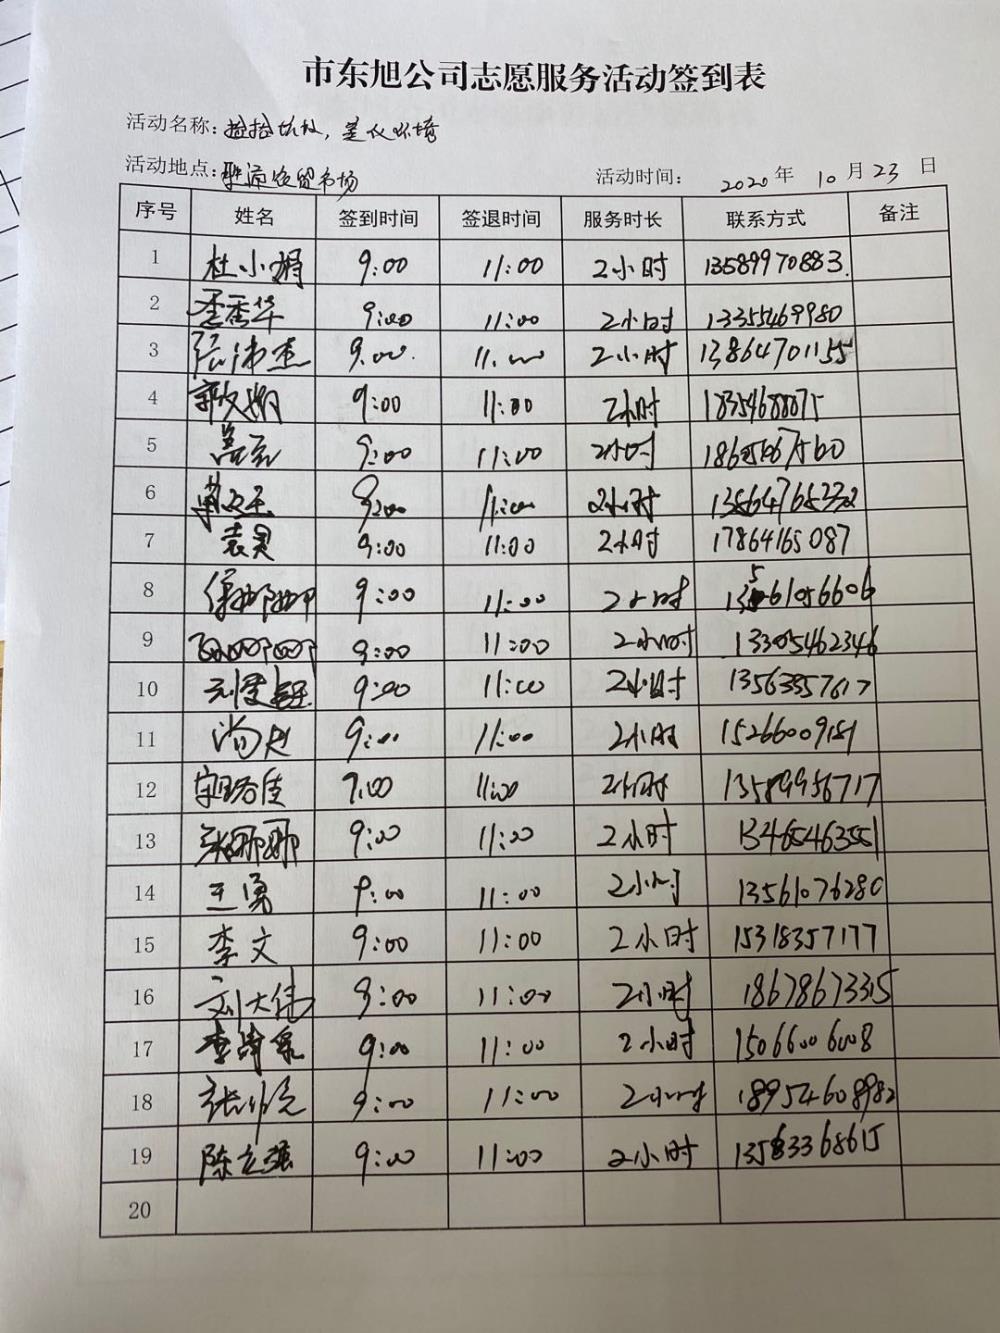 市东旭公司志愿服务活动签到表
活动名称：捡拾垃圾，美化环境
活动地点：农贸市场 活动时间： 2020 年 10 月 23 日
序号 姓名 签到时间 签退时间 服务时长 联系方式 备注
1 杜小娟 9:00 11:00 2小时 13589970883
2 李秀华 9:00 11:00 2小时 13355469980
3 9:00 11:00 2小时 13864701155
4 9:00 11:00 2小时 18354688875
5 9:00 11:00 2小时
6 9:00 11:00 2小时
7 袁昊 9:00 11:00 2小时 17864165087
8 9:00 11:00 2小时 13561056606
9 9:00 11:00 2小时 13305462346
10 9:00 11:00 2小时 13563357617
11 尚赵 9:00 11:00 2小时 15266009151
12 9:00 11:00 2小时 13589956717
13 张娜娜 9:00 11:00 2小时 13465463551
14 王勇 9:00 11:00 2小时 13561076280
15 李文 9:00 11:00 2小时 15318357177
16 刘大伟 9:00 11:00 2小时 18678673315
17 9:00 11:00 2小时 15066006008
18 9:00 11:00 2小时 18954608982
19 陈立强 9:00 11:00 2小时 13563368615
20